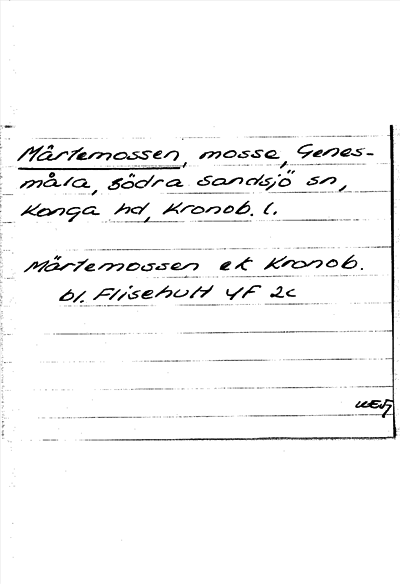 Mårtemossen, mosse, Genes-
måla, Södra Sandsjö sn,
Konga hd, Kronob. l.
Mårtemossen ek Kronob.
bl. Flisehult 4F 2c